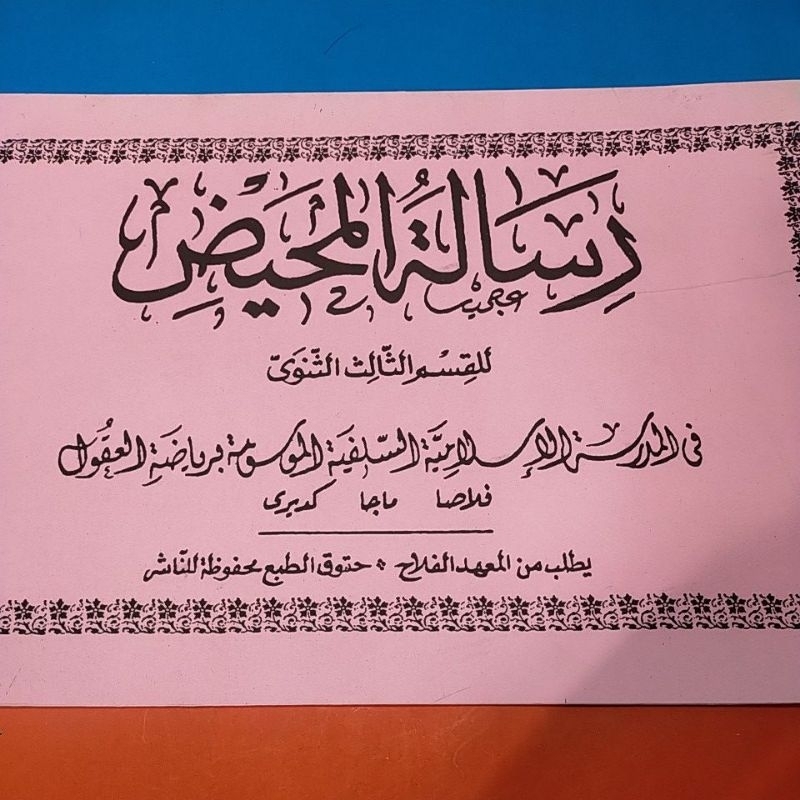 رِسَالَةُ الْمَحِيْضِ
للقِسْمِ الثَّالِث الثَّنَوِىّ
فى المدرسة الإسلاميّة السّلفيّة الموسومة برياضَةِ العقُول
فلاصا ماجا كديرى
يطلب من المعهد الفلاح * حتوق الطبع محفوظة للنّاشر